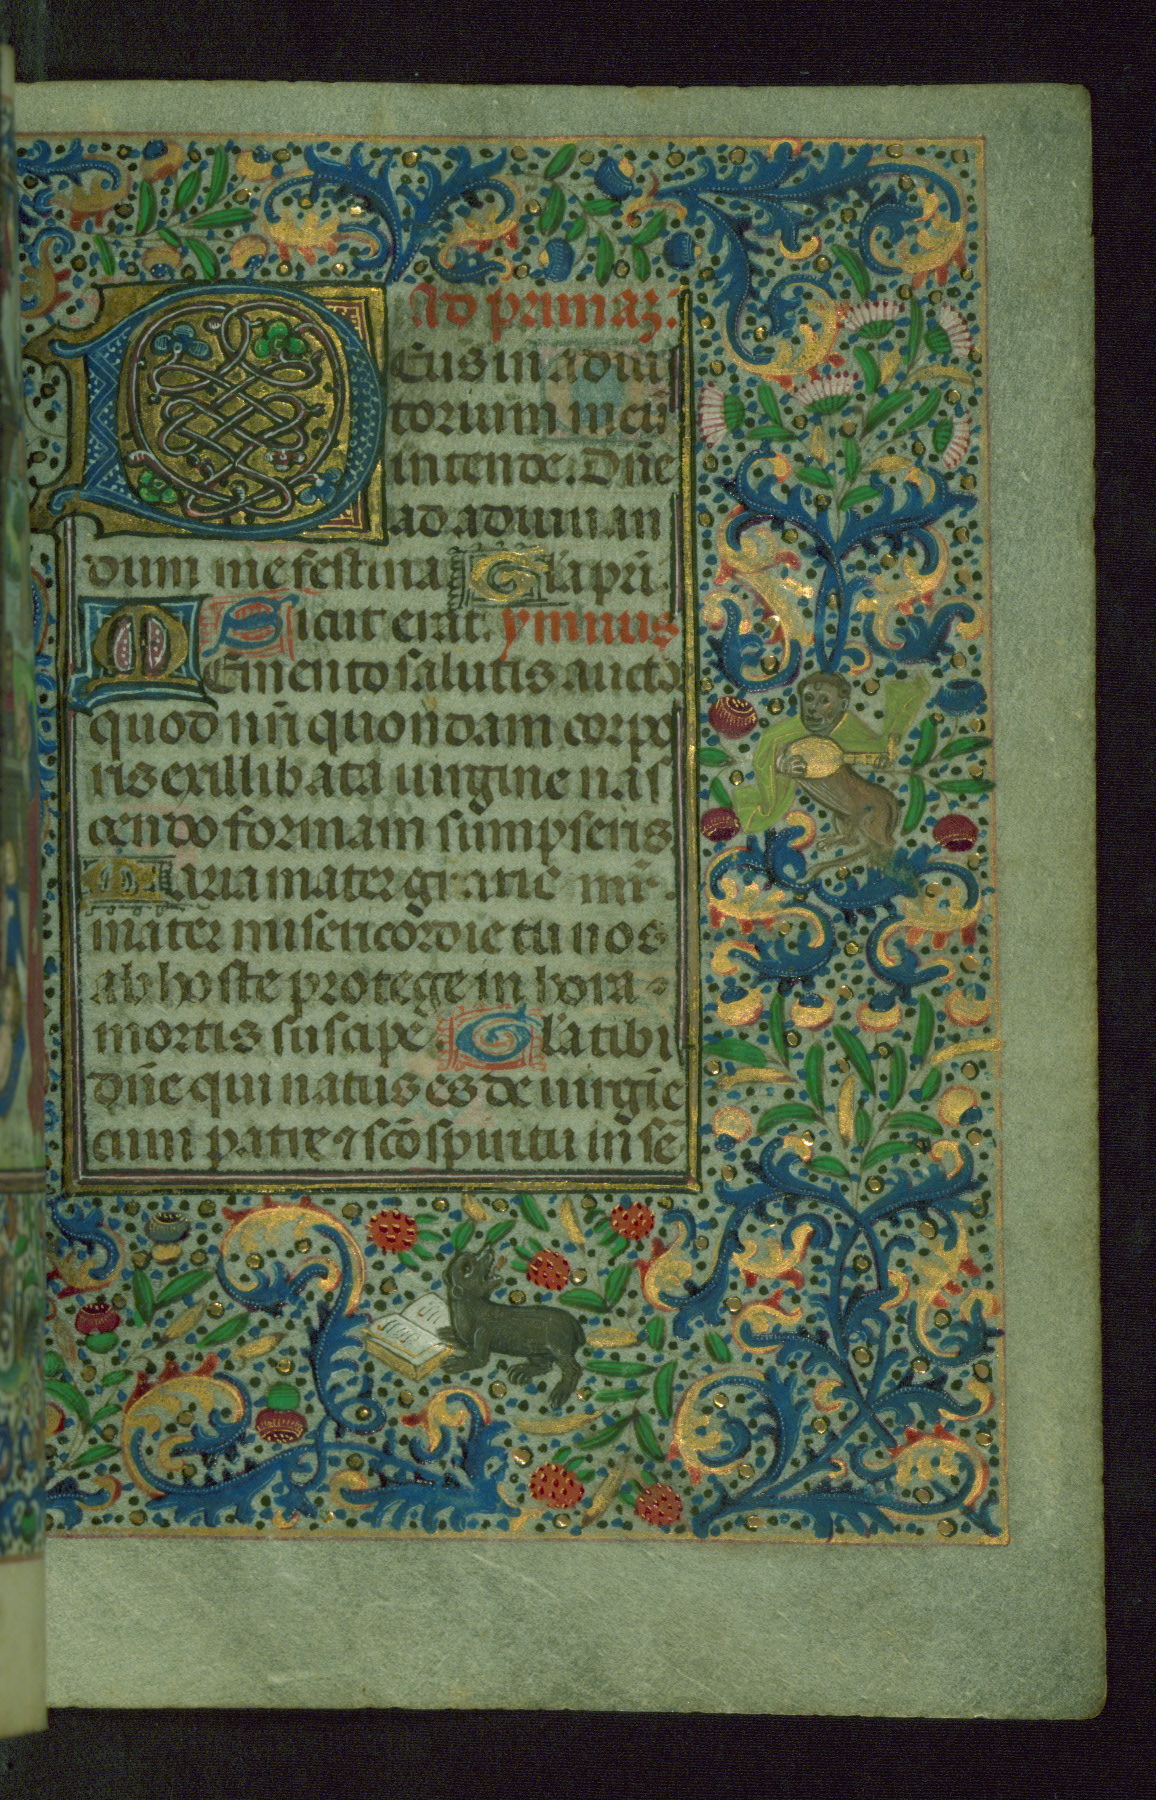 Ad primaz.
DEus in adiu
torium meū
intende. Dn̄e
ad adiuuan
dum me festina. Gl'a pr̄i.
Sicut erat. ymnus
MEmento salutis auctor
quod nr̄i quondam corpo
ris exillibata uirgine nas
cendo formam sumpseris
Maria mater gratie mr̄.
mater misericordie tu nos
ab hoste protege in hora
mortis suscipe Gl'a tibi
dn̄e qui natus es de uirgīe
cum patre ⁊ sc̄o spiritu in se